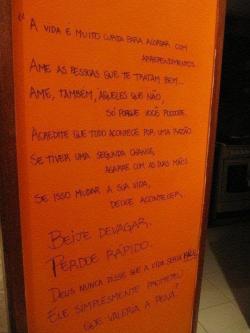 "A VIDA É MUITO CURTA PARA ACORDAR COM
ARREPENDIMENTOS.
AME AS PESSOAS QUE TE TRATAM BEM...
AME, TAMBÉM, AQUELES QUE NÃO,
SÓ PORQUE VOCÊ PODE.
ACREDITE QUE TUDO ACONTECE POR UMA RAZÃO.
SE TIVER UMA SEGUNDA CHANCE,
AGARRE COM AS DUAS MÃOS.
SE ISSO MUDAR A SUA VIDA,
DEIXE ACONTECER.
BEIJE DEVAGAR.
PERDOE RÁPIDO.
DEUS NUNCA DISSE QUE A VIDA SERIA FÁCIL.
ELE SIMPLESMENTE PROMETEU
QUE VALERIA A PENA!"